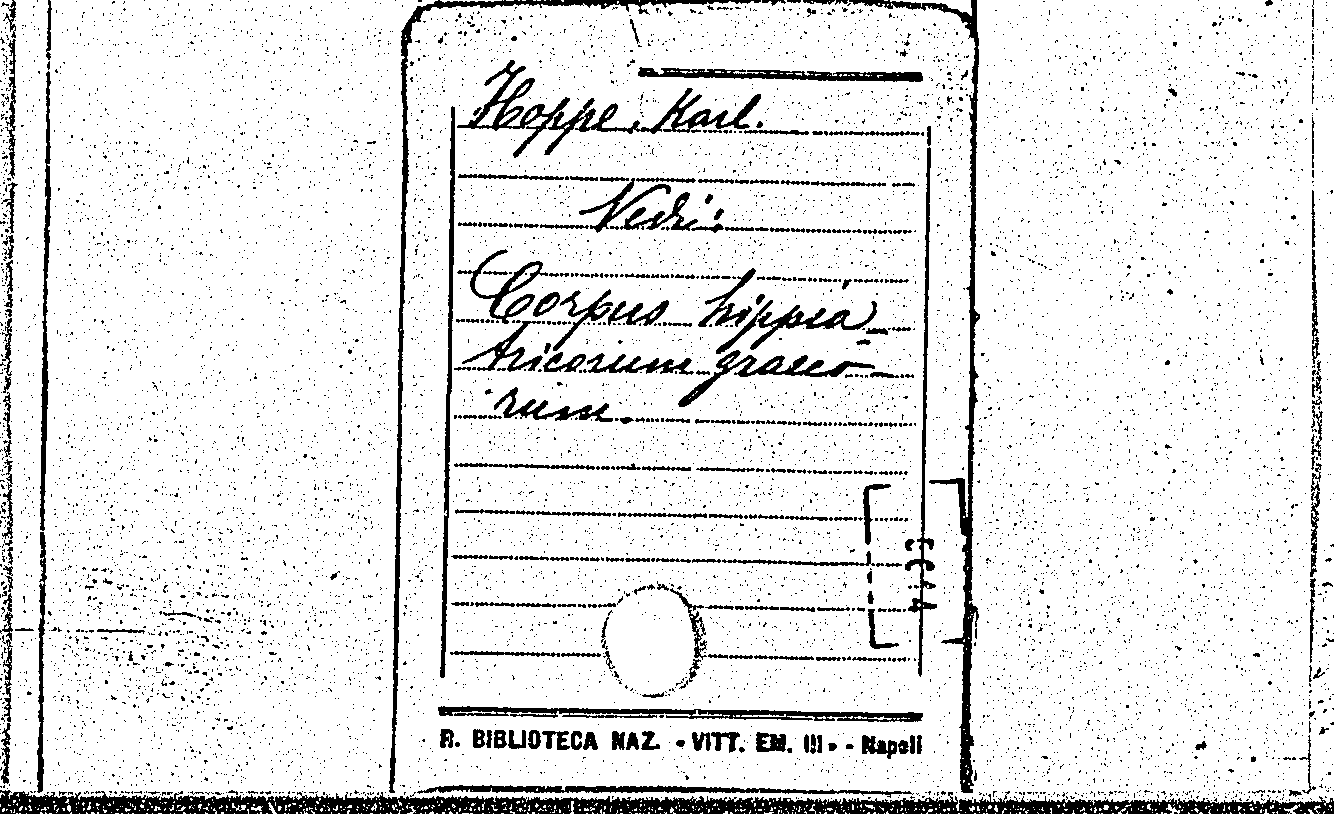 Hoppe, Karl.
Vedi:
Corpus hippia-
tricorum graeco-
rum.
R. BIBLIOTECA NAZ. "VITT. EM. III" - Napoli